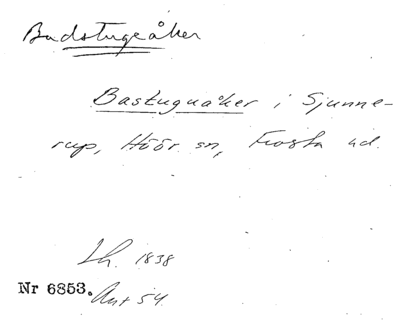 Badstugeåker
Bastuguåker i Sjunne-
rup, Höör sn, Frosta hd.
Lh. 1838
Nr 6853. Ant 54